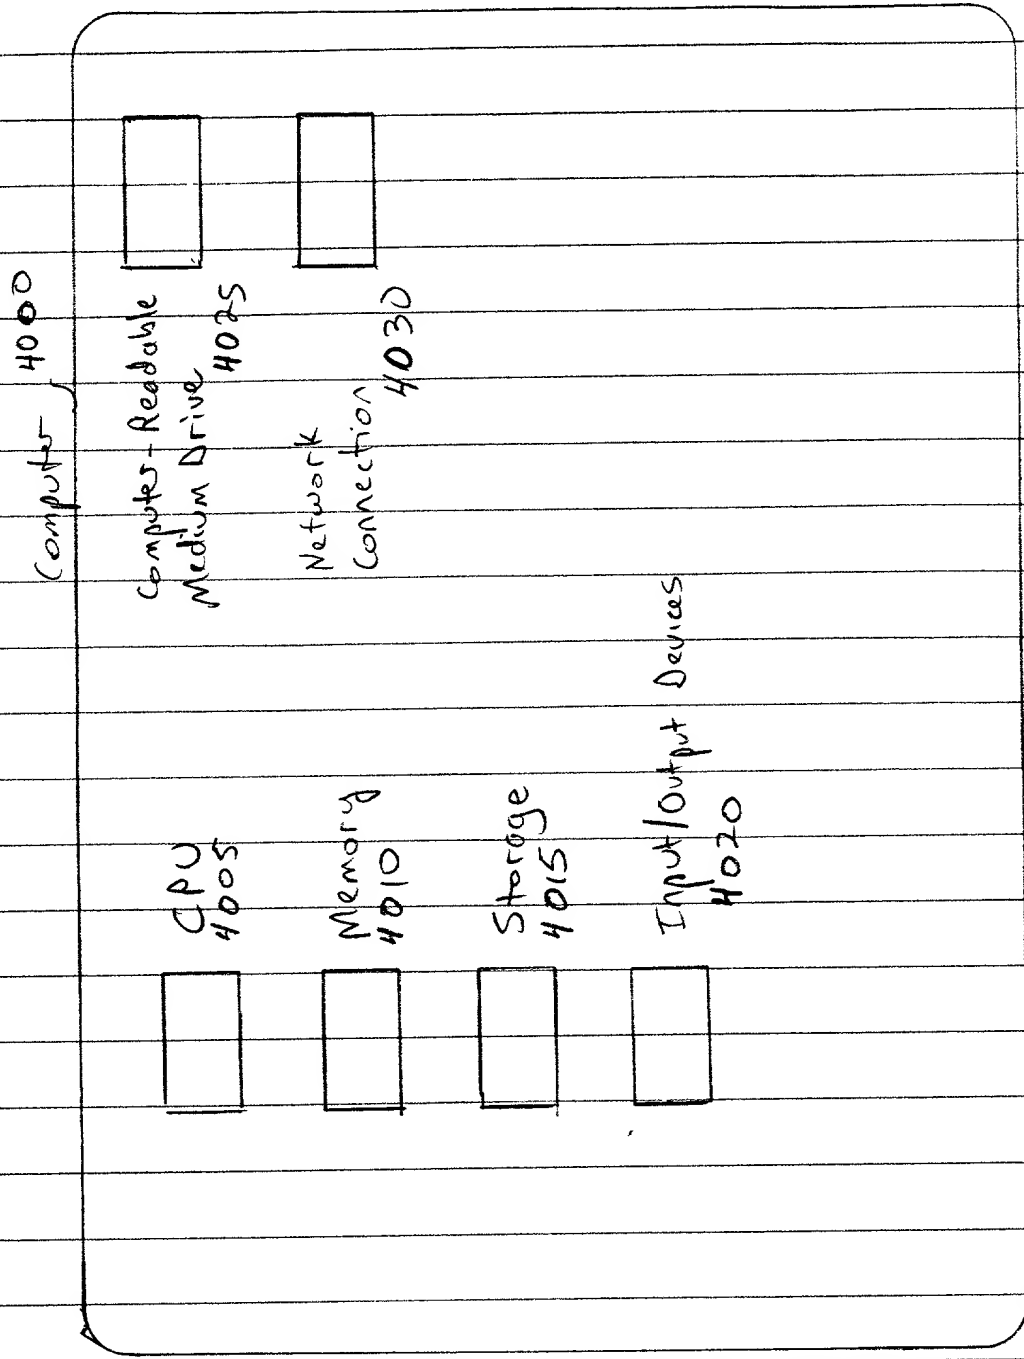 Computer 4000
CPU
4005
Memory
4010
Storage
4015
Input/Output Devices
4020
Computer-Readable
Medium Drive
4025
Network
Connection
4030